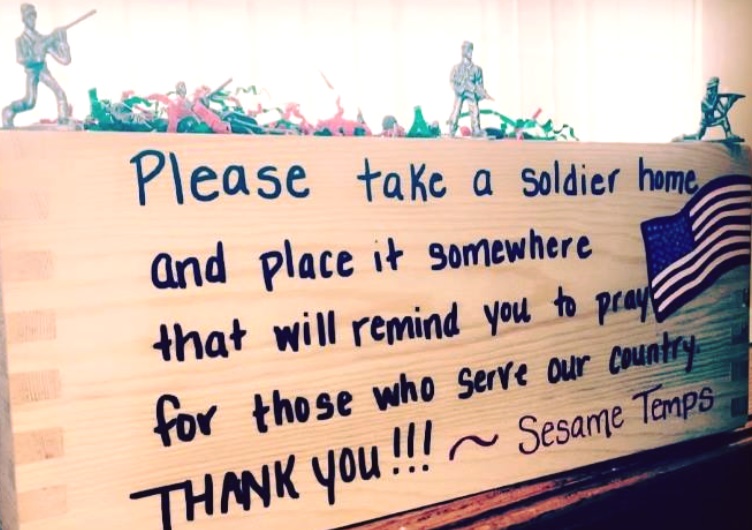 Please take a soldier home
and place it somewhere
that will remind you to pray
for those who serve our country.
THANK YOU!!! ~ Sesame Temps